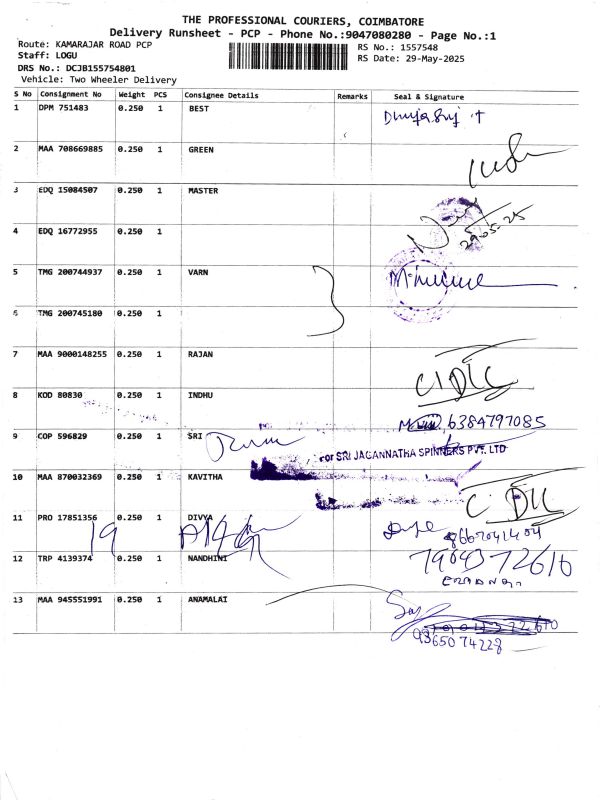 THE PROFESSIONAL COURIERS, COIMBATORE
Delivery Runsheet - PCP - Phone No.:9047080280 - Page No.:1
Route: KAMARAJAR ROAD PCP
Staff: LOGU
DRS No.: DCJB155754801
Vehicle: Two Wheeler Delivery
RS No.: 1557548
RS Date: 29-May-2025
S No Consignment No Weight PCS Consignee Details Remarks Seal & Signature
1 DPM 751483 0.250 1 BEST
2 MAA 708669885 0.250 1 GREEN
3 EDQ 15084507 0.250 1 MASTER
4 EDQ 16772955 0.250 1 29-05-25
5 TMG 200744937 0.250 1 VARN
6 TMG 200745180 0.250 1
7 MAA 9000148255 0.250 1 RAJAN
8 KOD 80830 0.250 1 INDHU
6384797085
9 COP 596829 0.250 1 SRI
For SRI JAGANNATHA SPINNERS PVT. LTD
10 MAA 870032369 0.250 1 KAVITHA
11 PRO 17851356 0.250 1 DIVYA
19
8667041404
12 TRP 4139374 0.250 1 NANDHINI
7904372610
13 MAA 945551991 0.250 1 ANAMALAI
9365074228